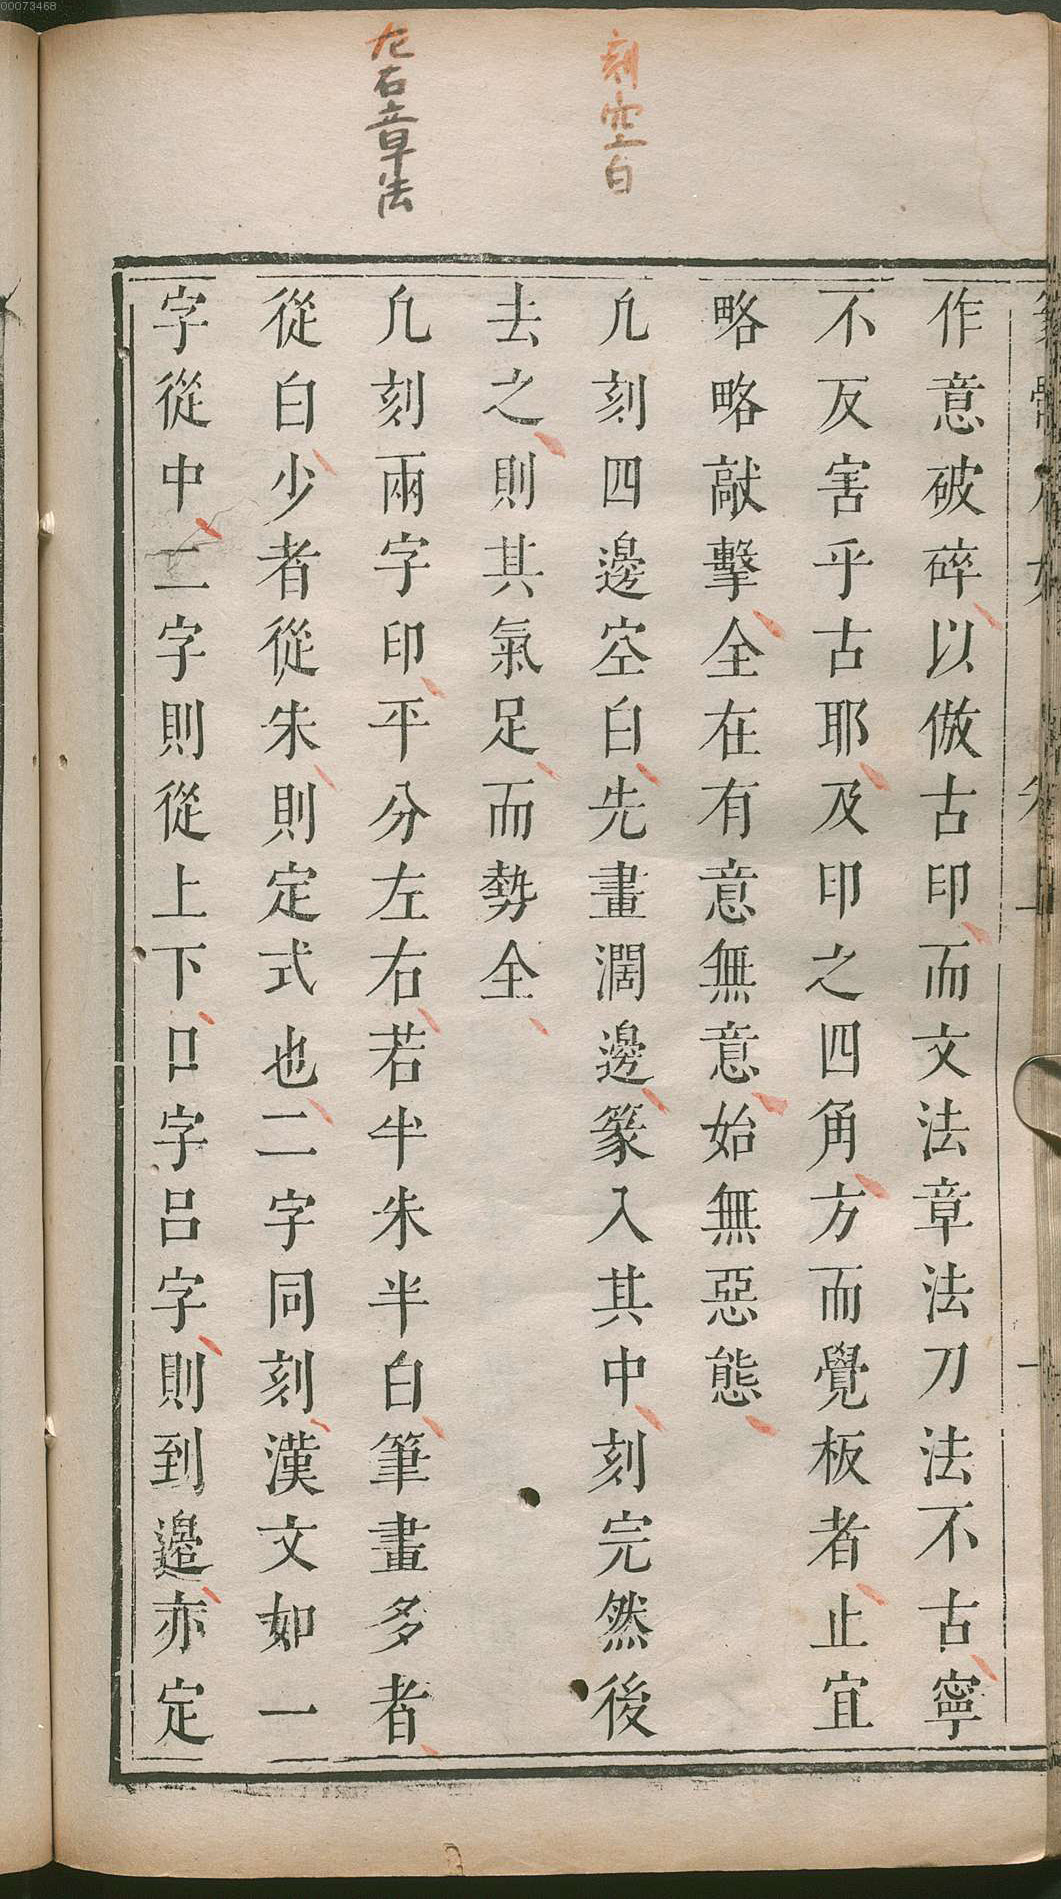 00073468
刻空白
左右章法
作意破碎以倣古印而文法章法刀法不古寧
不反害乎古耶及印之四角方而覺板者止宜
略略敲擊全在有意無意始無惡態
凢刻四邊空白先畫濶邊篆入其中刻完然後
去之則其氣足而勢全
凢刻兩字印平分左右若半朱半白筆畫多者
從白少者從朱則定式也二字同刻漢文如一
字從中二字則從上下口字呂字則到邊亦定